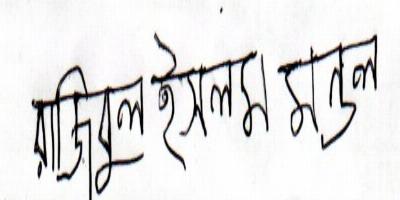 রাজিবুল ইসলাম মন্ডল